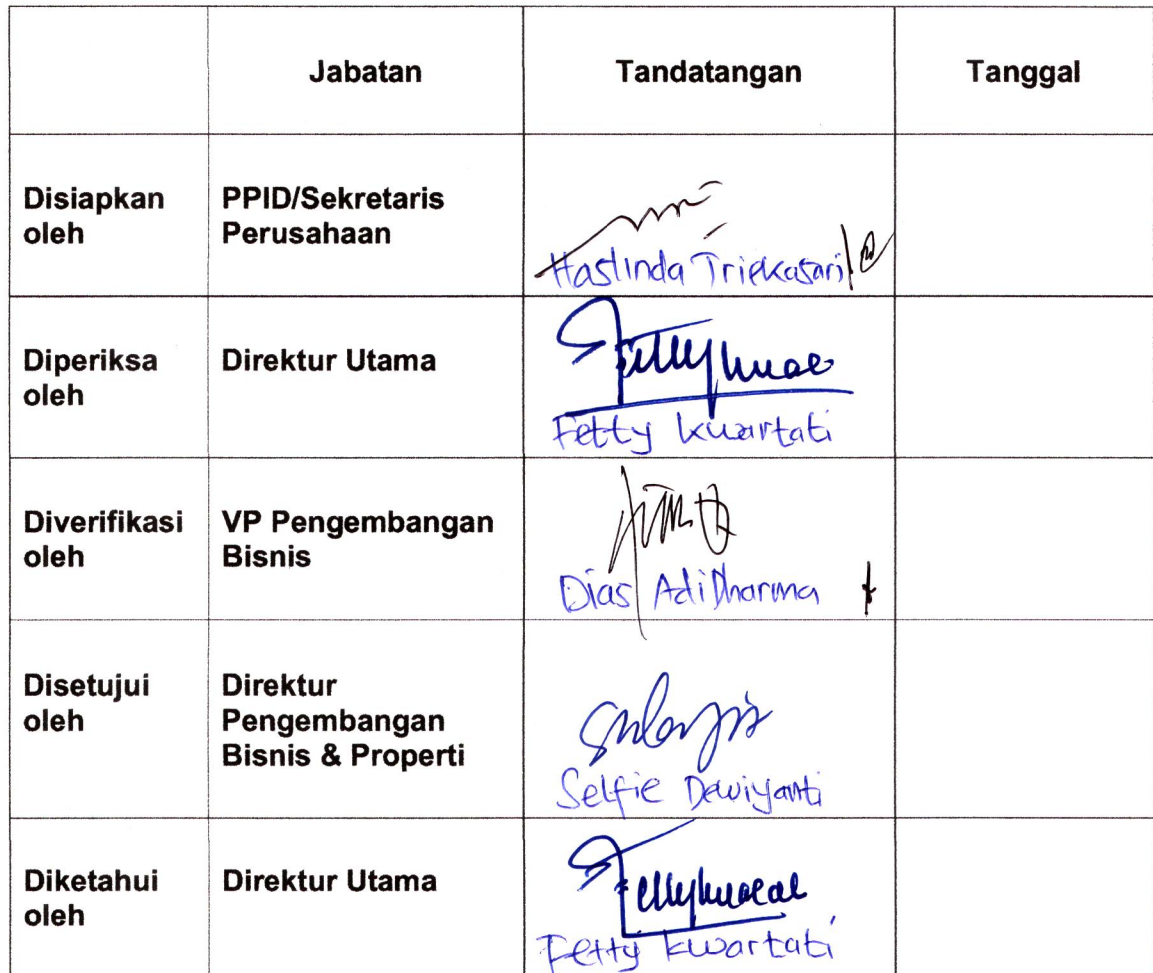 Jabatan Tandatangan Tanggal
Disiapkan PPID/Sekretaris
oleh Perusahaan
Haslinda Triekasari
Diperiksa Direktur Utama
oleh
Fetty Kwartati
Diverifikasi VP Pengembangan
oleh Bisnis
Dias AdiDharma
Disetujui Direktur
oleh Pengembangan
Bisnis & Properti
Selfie Dewiyanti
Diketahui Direktur Utama
oleh
Fetty Kwartati